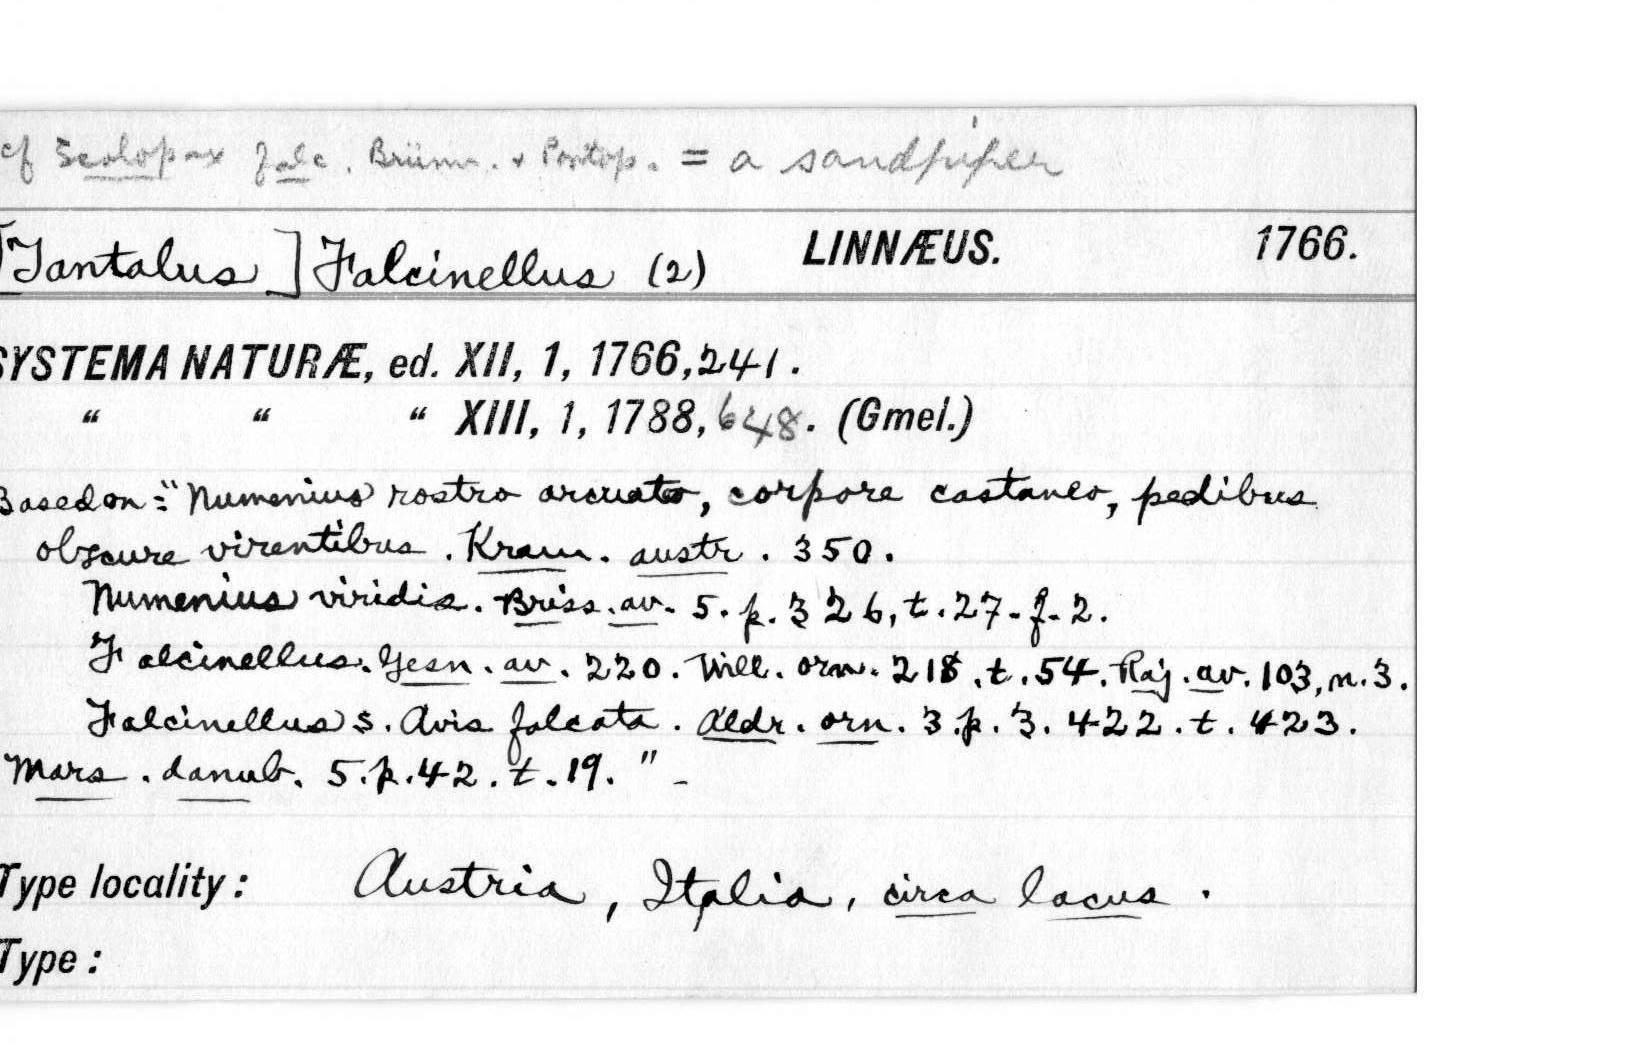 cf Scolopax falc. Brünn. & Pontop. = a sandpiper
[Tantalus] Falcinellus (2) LINNÆUS. 1766.
SYSTEMA NATURÆ, ed. XII, 1, 1766, 241.
“ “ “ XIII, 1, 1788, 648. (Gmel.)
Based on = "Numenius rostro arcuato, corpore castaneo, pedibus
obscure virentibus. Kram. austr. 350.
Numenius viridis. Briss. av. 5. p. 326, t. 27. f. 2.
Falcinellus. Gesn. av. 220. Will. orn. 218. t. 54. Raj. av. 103, n. 3.
Falcinellus s. Avis falcata. Aldr. orn. 3. p. 3. 422. t. 423.
Mars. danub. 5. p. 42. t. 19. " -
Type locality: Austria, Italia, circa lacus.
Type: